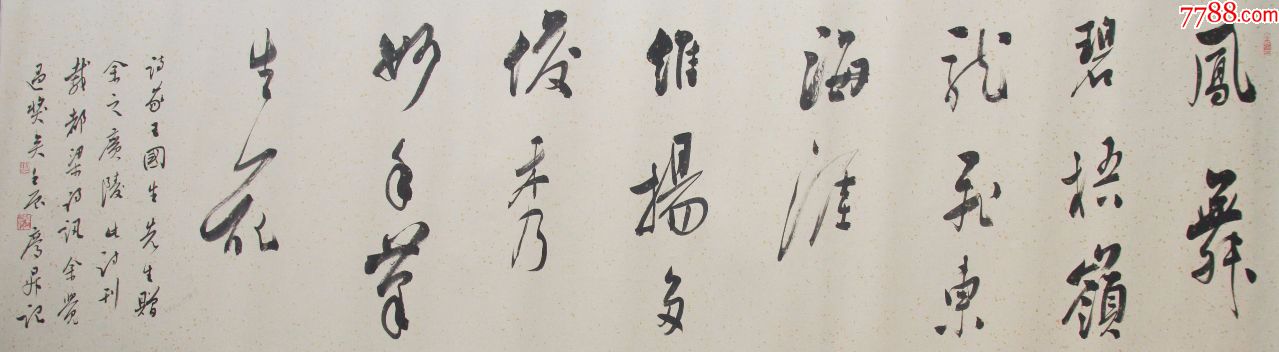 鳳舞
碧梧嶺
龍飛東
海涯
維揚多
俊秀
妙手筆
生花
詩爲王國生先生贈
余之廣陵 此詩刊
載都梁詩訊 余覺
過獎矣 壬辰 彥昇記
7788.com